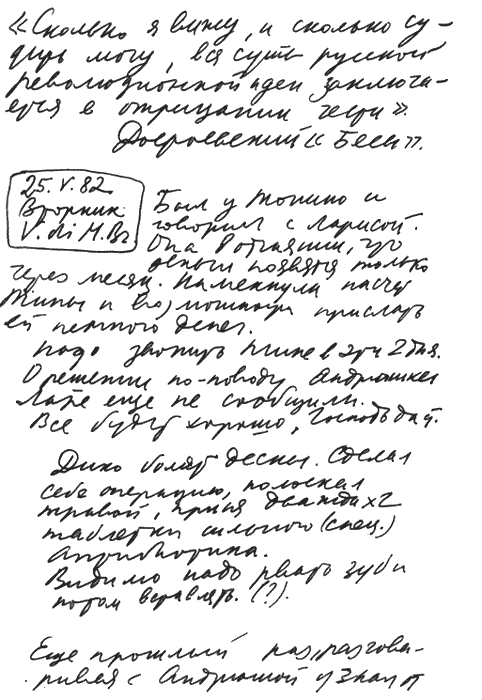 «Сколько я вижу, и сколько су-
дить могу, вся суть русской
революционной идеи заключа-
ется в отрицании чести».
Достоевский «Бесы».
25.V.82
Вторник
V. di M.Br.
Был у Тонино и
говорил с Ларисой.
Она в отчаянии, что
деньги появятся только
через месяц. Намекнули насчет
Тяпы и возможности прислать
ей немного денег.
Надо звонить Тяпе в эти 2 дня.
О решении по-поводу Андрюшки
Ларе еще не сообщили.
Все будет хорошо, Господь даст.
Дико болят десны. Сделал
себе операцию, полоскал
травой, принял дважды x 2
таблетки сильного (спец.)
антибиотика.
Видимо надо рвать зубы
потом вставлять. (?).
Еще прошлый раз, разгова-
ривая с Андрюшой узнал от